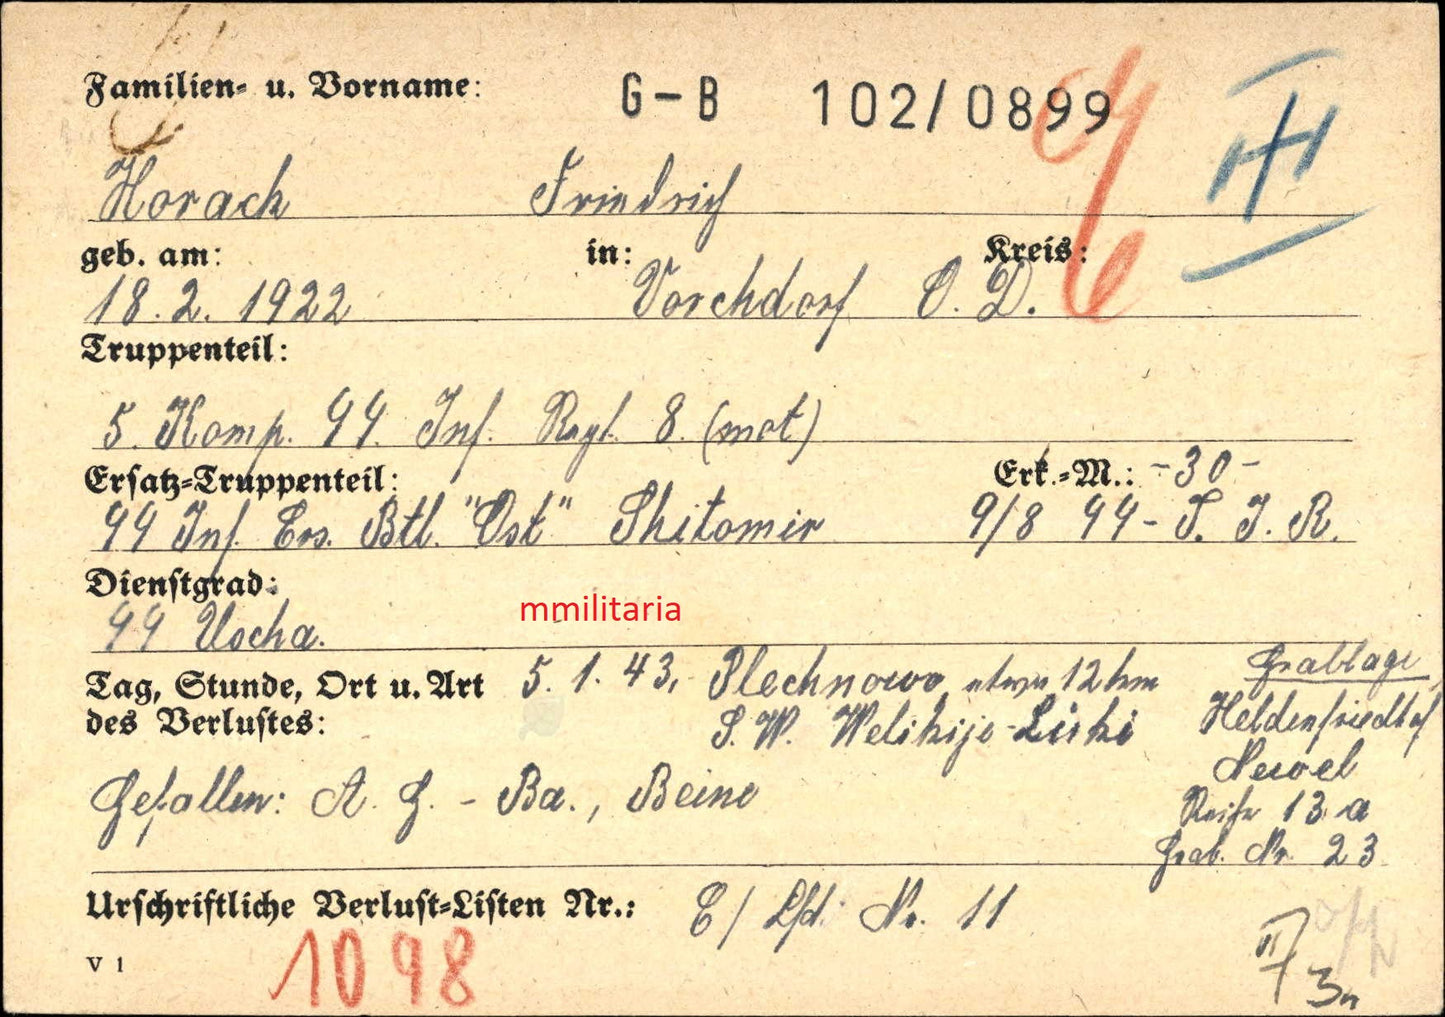 Familien- u. Vorname:
G-B 102/0899
Horach Friedrich
geb. am: in: Kreis:
18.2.1922 Vorchdorf O.D.
Truppenteil:
5. Komp. 44. Inf. Regt. 8. (mot)
Ersatz-Truppenteil: Erk.-M.: -30-
44 Inf. Ers. Btl. "Ost" Shitomir 9/8 44-T. J. R.
Dienstgrad:
44 Uscha.
mmilitaria
Tag, Stunde, Ort u. Art
des Verlustes:
5.1.43, Plechnowo, etwa 12 km
S.W. Welikije-Luki
Gefallen: A. G. - Ba., Beine
Grablage
Heldenfriedhof
Newel
Reihe 13 a
Grab. Nr. 23
Urschriftliche Verlust-Listen Nr.: E/ Lfd. Nr. 11
V 1
1098